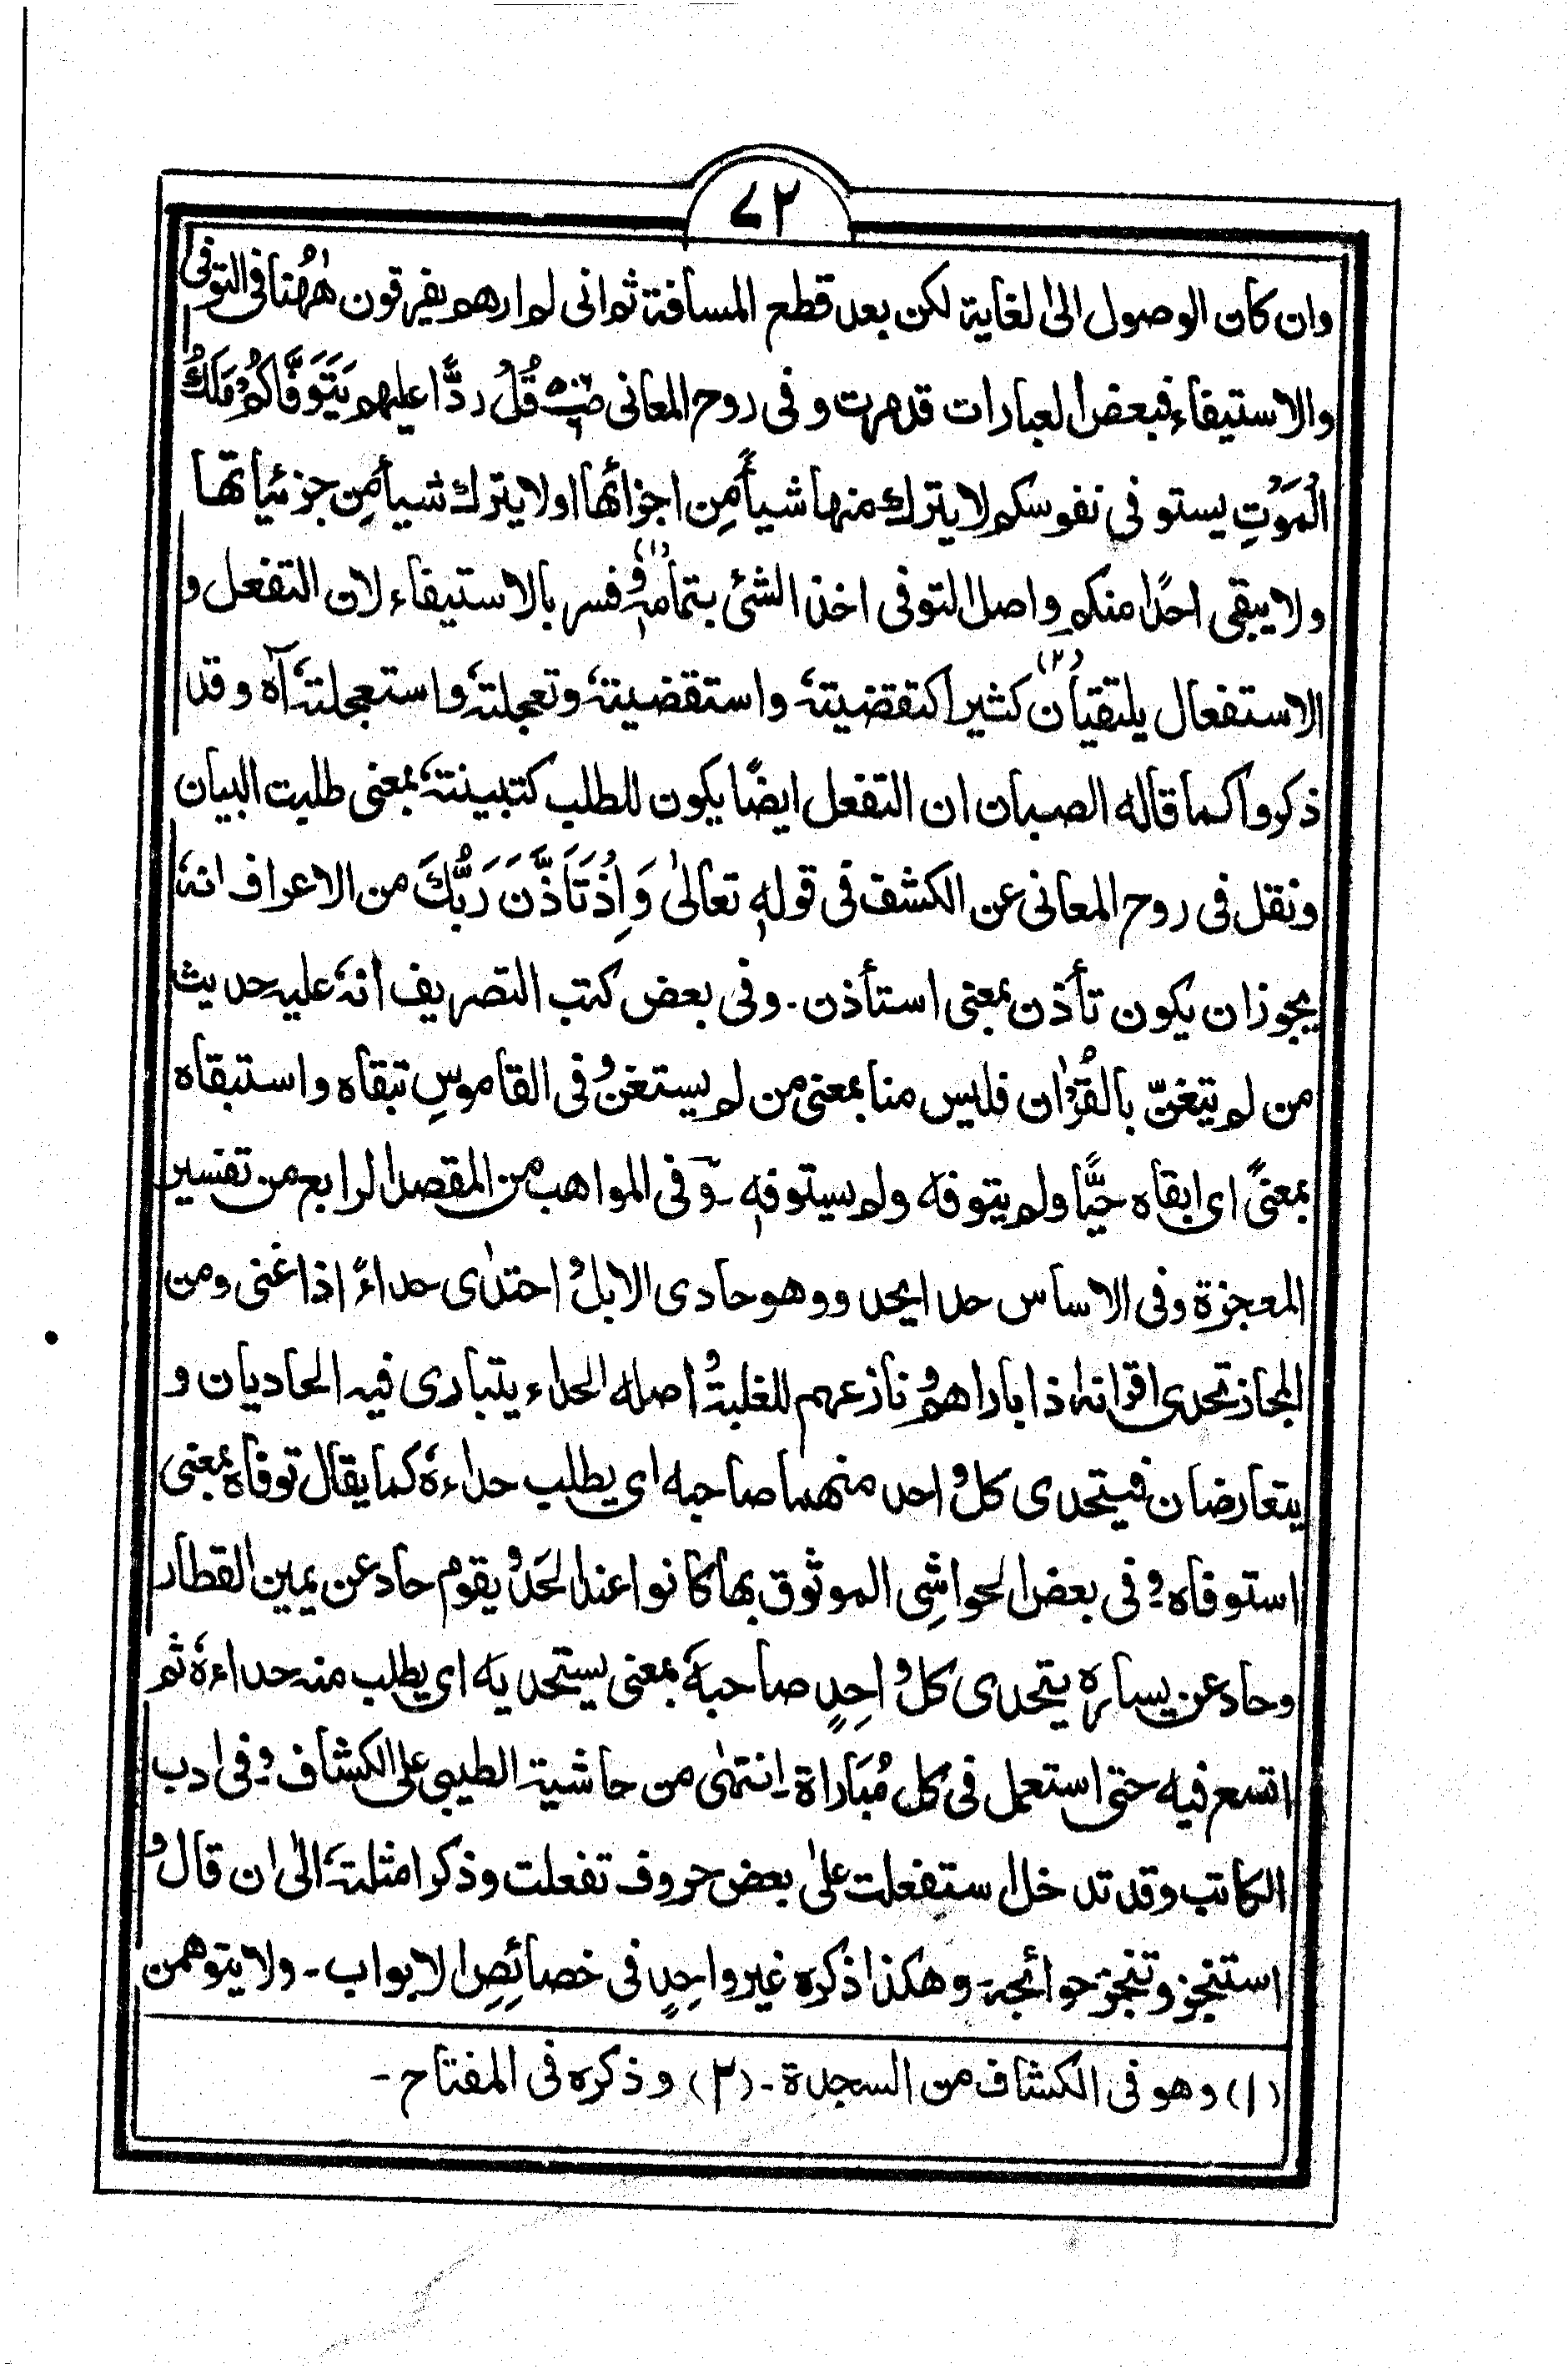 ٧٢
وان كان الوصول الى الغاية لكن بعد قطع المسافة ثم انى لم ارهم يفرقون هٰهُنا فى التوفى
والاستيفاء فبعض العبارات قد مرت و فى روح المعانى قُلْ ردًّا عليهم يَتَوَفَّاكُمْ مَلَكُ
الْمَوْتِ يستوفى نفوسكم لا يترك منها شيأً مِن اجزائها او لا يترك شيأ مِن جزئياتها
ولا يبقى احدًا منكم واصل التوفى اخذ الشئ بتمامہٖ(١) و فسر بالاستيفاء لان التفعل و
الاستفعال يلتقيان(٢) كثيرا كتقضيتہٗ واستقضيتہٗ وتعجلتہٗ واستعجلتہٗ آه وقد
ذكروا كما قاله الصبان ان التفعل ايضًا يكون للطلب كتبينتہٗ بمعنى طلبت البيان
ونقل فى روح المعانى عن الكشف فى قولهٖ تعالىٰ وَاِذْ تَاَذَّنَ رَبُّكَ من الاعراف انهٗ
يجوز ان يكون تأذن بمعنى استأذن۔ وفى بعض كتب التصريف انهٗ عليه حديث
من لم يتغنّ بالقُرْاٰن فليس منا بمعنى من لم يستغن و فى القاموسِ تبقاه واستبقاه
بمعنىً اى ابقاه حيًّا ولم يتوفه ولم يستوفهٖ۔ و فى المواهب من المقصد الرابع من تفسير
المعجزة وفى الاساس حدا يحدو وهو حادى الابل و احتدٰى حداءً اذا غنى ومن
المجاز تحدى اقرانہٗ اذا باراهم و نازعهم للغلبة و اصله الحداء يتبارى فيه الحاديان و
يتعارضان فيتحدى كل واحد منهما صاحبه اى يطلب حداءهٗ كما يقال توفاه بمعنى
استوفاه و فى بعض الحواشِى الموثوق بها كانوا عند الحَدْو يقوم حاد عن يمين القطار
وحاد عن يسارهٖ يتحدى كل واحِدٍ صاحبهٗ بمعنى يستحديه اى يطلب منه حداءهٗ ثم
اتسع فيه حتى استعمل فى كل مُبَاراة۔ انتهٰى من حاشية الطيبى على الكشاف و فى ادب
الكاتب وقد تدخل استفعلت علىٰ بعض حروف تفعلت وذكر امثلتہٗ الىٰ ان قال و
استنجز وتنجز حوائجہ۔ وهكذا ذكرهٖ غير واحِدٍ فى خصائصِ الابواب۔ ولا يتوهمن
(١) وهو فى الكشاف من السجدة۔ (٢) وذكره فى المفتاح۔